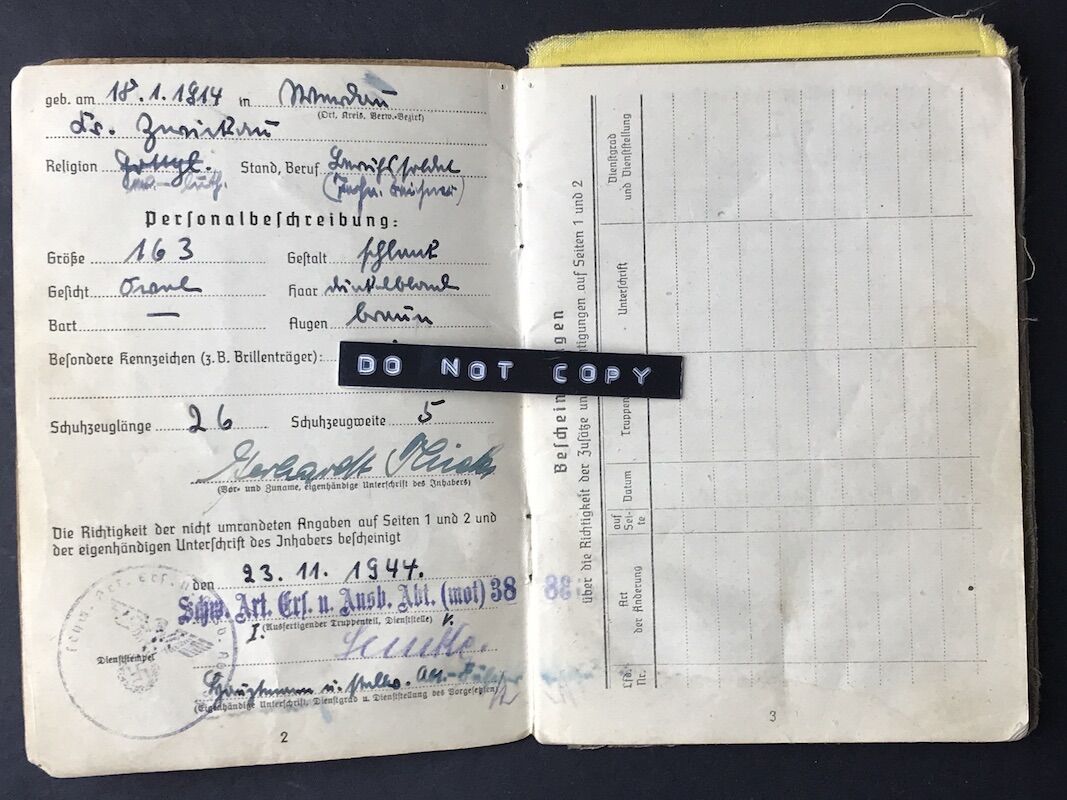 geb. am 18.1.1914 in Werdau
(Ort, Kreis, Verw.-Bezirk)
Kr. Zwickau
Religion Stand, Beruf Berufssoldat
ev.-luth. (techn. Zeichner)
Personalbeschreibung:
Größe 163 Gestalt schlank
Gesicht Oval Haar dunkelblond
Bart — Augen braun
Besondere Kennzeichen (z.B. Brillenträger):
DO NOT COPY
Schuhzeuglänge 26 Schuhzeugweite 5
Gerhardt
(Vor- und Zuname, eigenhändige Unterschrift des Inhabers)
Die Richtigkeit der nicht umrandeten Angaben auf Seiten 1 und 2 und
der eigenhändigen Unterschrift des Inhabers bescheinigt
den 23.11.1944.
Schw. Art. Ers. u. Ausb. Abt. (mot) 38
(Ausfertigender Truppenteil, Dienststelle)
I. V.
Dienststempel
Hauptmann u. stellv.
(Eigenhändige Unterschrift, Dienstgrad u. Dienststellung des Vorgesetzten)
2
Bescheinigungen
über die Richtigkeit der Zusätze und auf Seiten 1 und 2
Lfd. Nr.
Art der Änderung
auf Sei- te
Datum
Truppen
Unterschrift
Dienstgrad und Dienststellung
3